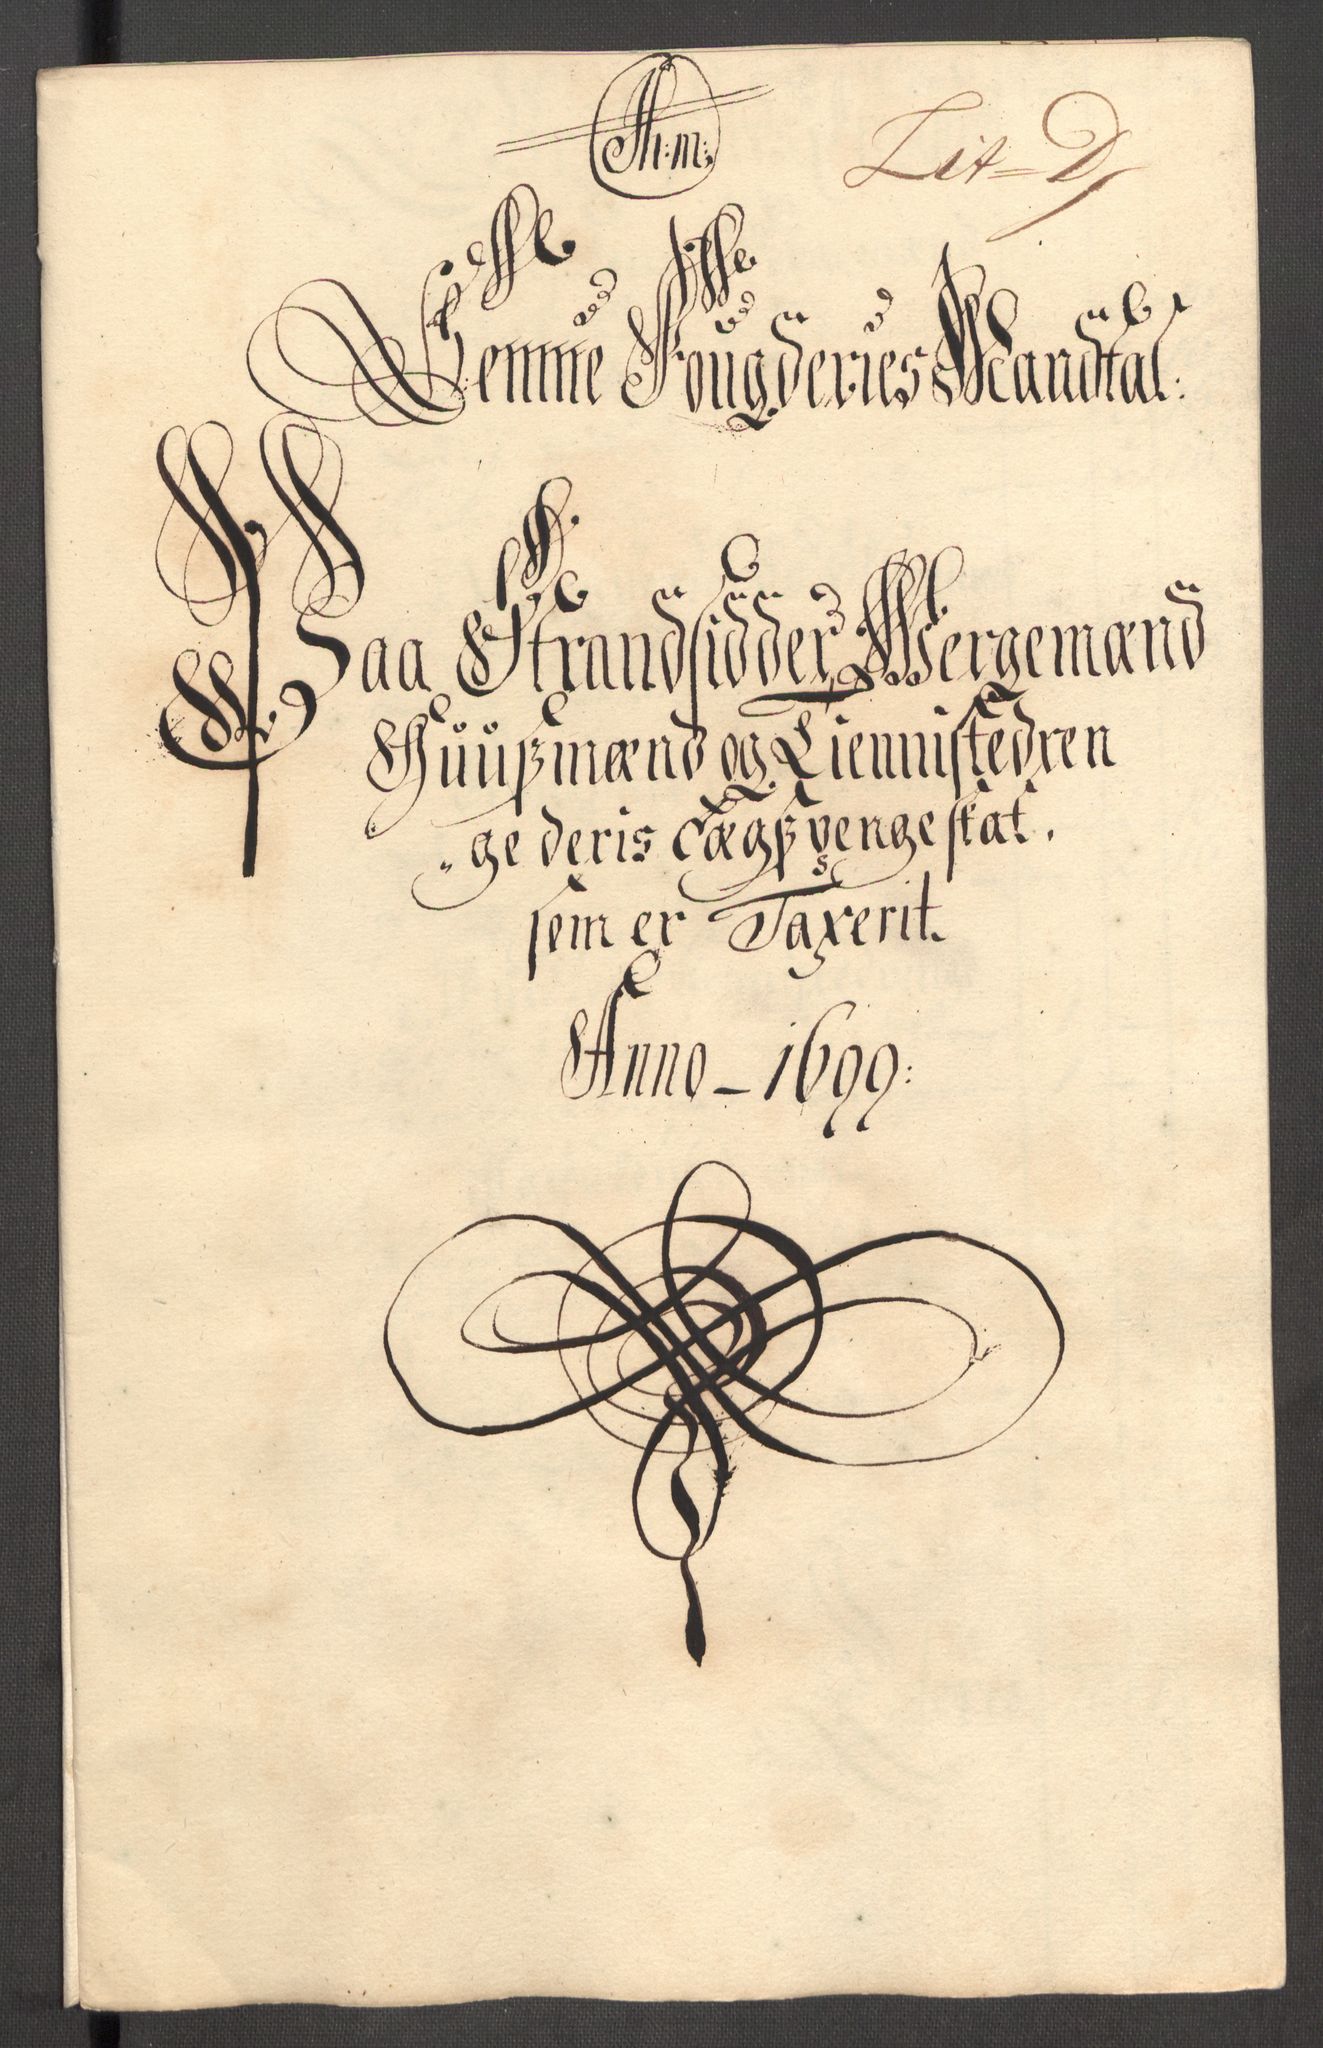 Lit D
Sennie Fougderies Mandtal:
Paa Strandsidder, Wergemænd
Huusmænd og Tiennistedren
ge deris Lægsvenge skat.
som er Taxerit.
Anno 1699: